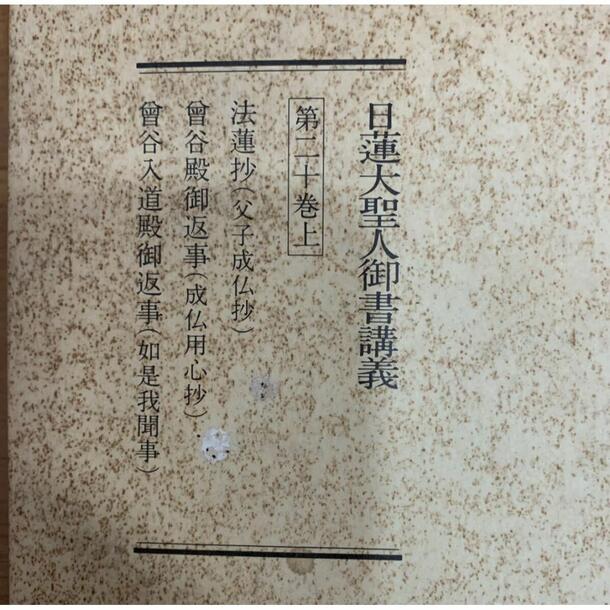 日蓮大聖人御書講義
第二十巻上
法蓮抄（父子成仏抄）
曾谷殿御返事（成仏用心抄）
曾谷入道殿御返事（如是我聞事）